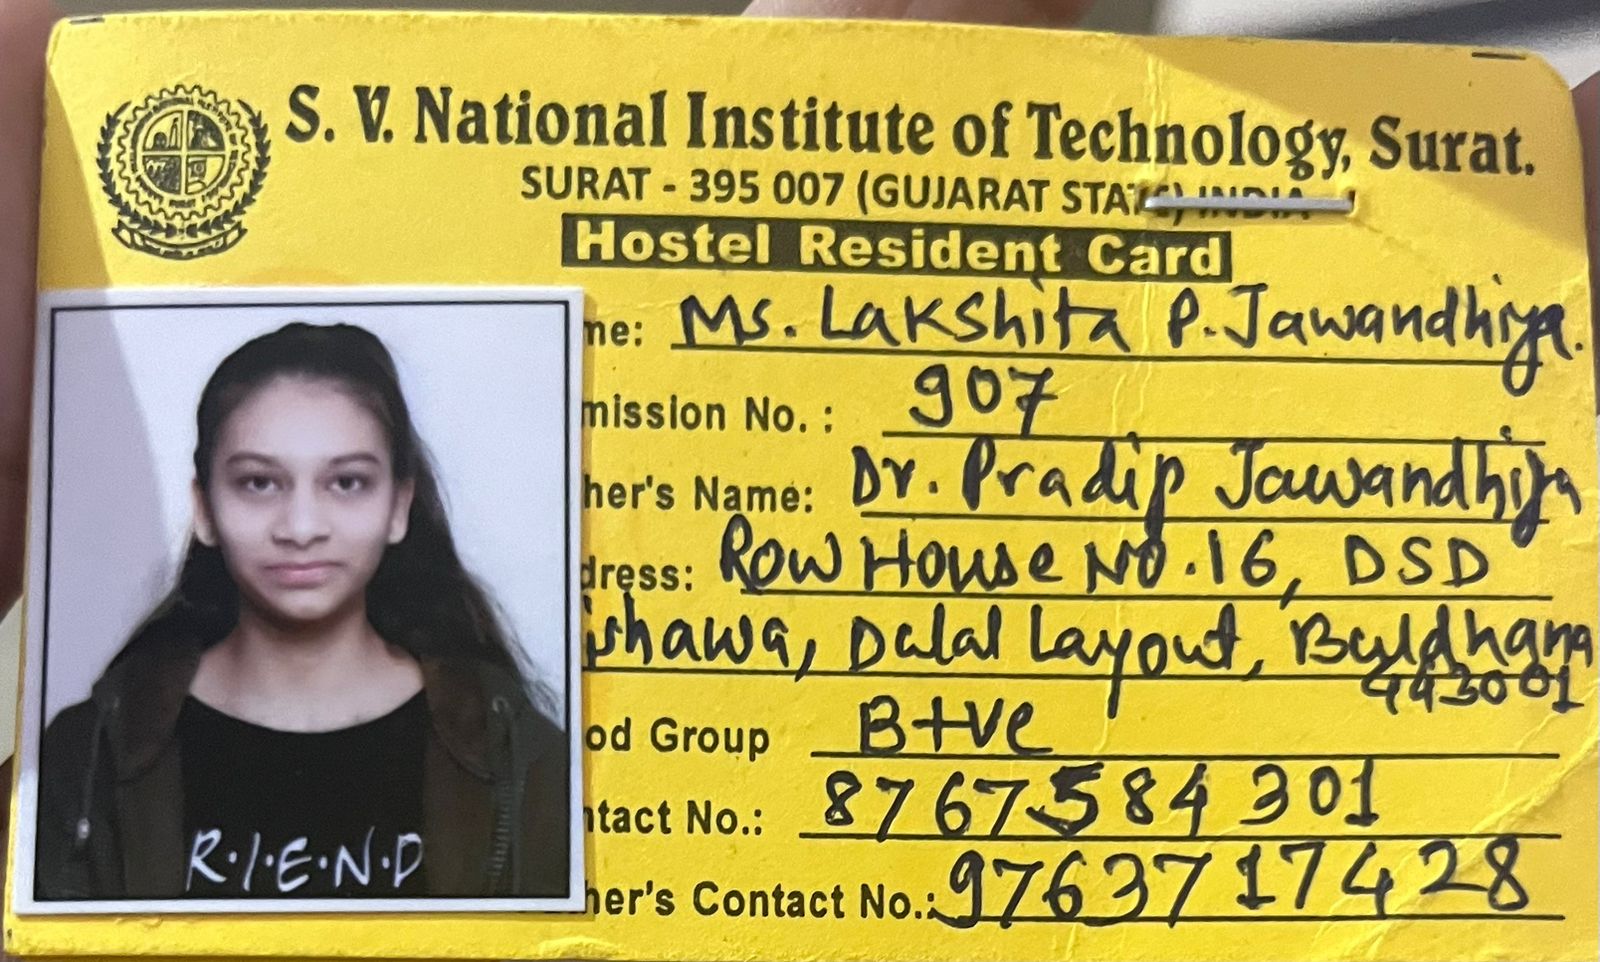 S. V. National Institute of Technology, Surat.
SURAT - 395 007 (GUJARAT STATE) INDIA
Hostel Resident Card
me: Ms. Lakshita P. Jawandhiya.
mission No. : 907
her's Name: Dr. Pradip Jawandhiya
dress: Row House No. 16, DSD
shawa, Dalal Layout, Buldhana
443001
od Group B+ve
ntact No.: 8767584301
her's Contact No.: 9763717428
R.I.E.N.D